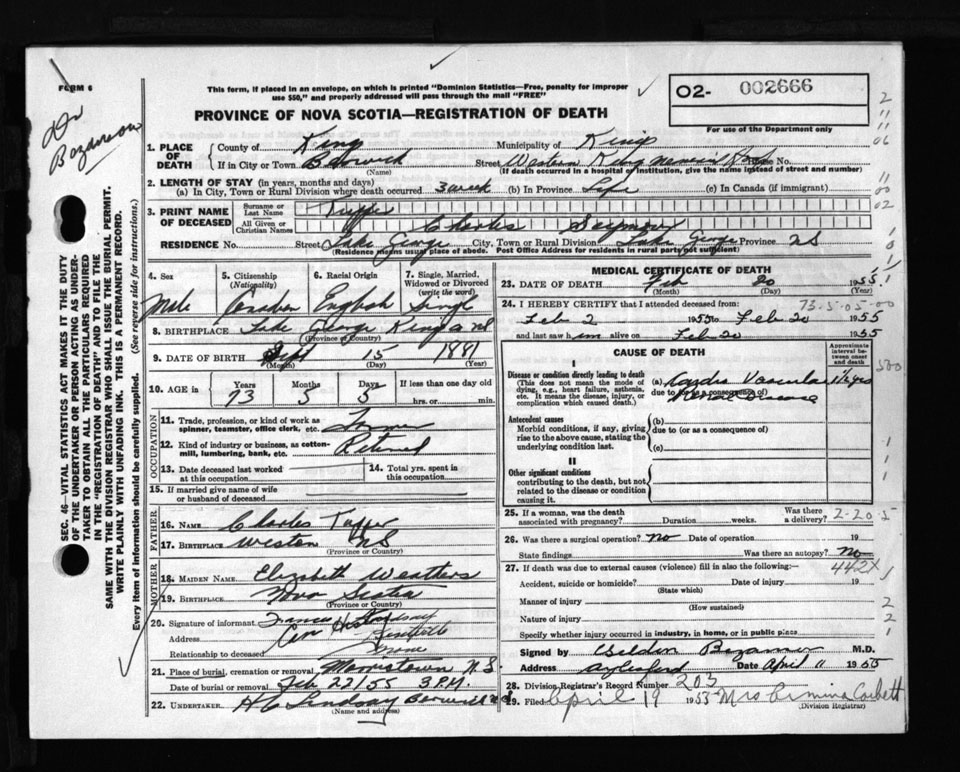 FORM 6
Dr Bozanson
This form, if placed in an envelope, on which is printed "Dominion Statistics—Free, penalty for improper
use $50," and properly addressed will pass through the mail "FREE"
PROVINCE OF NOVA SCOTIA—REGISTRATION OF DEATH
O2- 002666
For use of the Department only
SEC. 46—VITAL STATISTICS ACT MAKES IT THE DUTY
OF THE UNDERTAKER OR PERSON ACTING AS UNDER-
TAKER TO OBTAIN ALL THE PARTICULARS REQUIRED
IN THE "REGISTRATION OF DEATH" AND TO FILE THE
SAME WITH THE DIVISION REGISTRAR WHO SHALL ISSUE THE BURIAL PERMIT.
WRITE PLAINLY WITH UNFADING INK. THIS IS A PERMANENT RECORD.
Every item of information should be carefully supplied. (See reverse side for instructions.)
1. PLACE OF DEATH County of Kings Municipality of Kings
If in City or Town Berwick (Name) Street Western Kings Memorial Hosp House No.
(If death occurred in a hospital or institution, give the name instead of street and number)
2. LENGTH OF STAY (in years, months and days)
(a) In City, Town or Rural Division where death occurred 3 week (b) In Province Life (c) In Canada (if immigrant)
3. PRINT NAME OF DECEASED
Surname or Last Name Tupper
All Given or Christian Names Charles
RESIDENCE No. Street Lake George City, Town or Rural Division Lake George Province NS
(Residence means usual place of abode. Post Office Address for residents in rural parts not sufficient)
4. Sex Male
5. Citizenship (Nationality) Canadian
6. Racial Origin English
7. Single, Married, Widowed or Divorced (write the word) Single
8. BIRTHPLACE Lake George Kings Co NS
(Province or Country)
9. DATE OF BIRTH Sept 15 1881
(Month) (Day) (Year)
10. AGE in Years 73 Months 5 Days 5 If less than one day old
hrs. or min.
OCCUPATION
11. Trade, profession, or kind of work as
spinner, teamster, office clerk, etc. Farmer
12. Kind of industry or business, as cotton-
mill, lumbering, bank, etc. Retired
13. Date deceased last worked
at this occupation
14. Total yrs. spent in
this occupation
15. If married give name of wife
or husband of deceased
FATHER
16. NAME Charles Tupper
17. BIRTHPLACE Weston NS
(Province or Country)
MOTHER
18. MAIDEN NAME Elizabeth Weathers
19. BIRTHPLACE Nova Scotia
(Province or Country)
20. Signature of informant
Address
Relationship to deceased
21. Place of burial, cremation or removal Morristown N.S.
Date of burial or removal Feb 22/55 3 P.M.
22. UNDERTAKER H C Lindsay Berwick NS
(Name and address)
MEDICAL CERTIFICATE OF DEATH
23. DATE OF DEATH Feb 20 1955
(Month) (Day)
24. I HEREBY CERTIFY that I attended deceased from: 73-5-05-00
Feb 2 1955 to Feb 20 1955
and last saw him alive on Feb 20 1955
I CAUSE OF DEATH
Approximate interval between onset and death
Disease or condition directly leading to death
(This does not mean the mode of
dying, e.g., heart failure, asthenia,
etc. It means the disease, injury, or
complication which caused death.)
(a) Cardio Vascular 1½ yrs
due to (or as a consequence of)
Renal Disease
Antecedent causes
Morbid conditions, if any, giving
rise to the above cause, stating the
underlying condition last.
(b)
due to (or as a consequence of)
(c)
II
Other significant conditions
contributing to the death, but not
related to the disease or condition
causing it.
25. If a woman, was the death
associated with pregnancy? Duration weeks. Was there a delivery? 2-20-5
26. Was there a surgical operation? No Date of operation 19
State findings Was there an autopsy? No
442X
27. If death was due to external causes (violence) fill in also the following:
Accident, suicide or homicide? Date of injury 19
(State which)
Manner of injury
(How sustained)
Nature of injury
Specify whether injury occurred in industry, in home, or in public place
Signed by M.D.
Address Aylesford Date April 11 1955
28. Division Registrar's Record Number 203
29. Filed April 19 1955 Mrs Ermina Corbett
(Division Registrar)